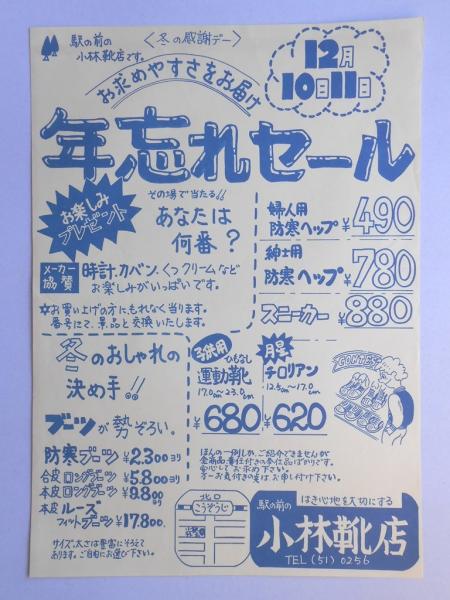 駅の前の
小林靴店です。
〈冬の感謝デー〉
12月
10日11日
お求めやすさをお届け
年忘れセール
お楽しみ
プレゼント
その場で当たる!!
あなたは
何番?
メーカー
協賛
時計、カバン、くつクリームなど
お楽しみがいっぱいです。
☆お買い上げの方にもれなく当ります。
番号にて、景品と交換いたします。
婦人用
防寒ヘップ ¥490
紳士用
防寒ヘップ ¥780
スニーカー ¥880
冬のおしゃれの
決め手!!
ブーツが勢ぞろい。
防寒ブーツ ¥2.300ヨリ
合皮ロングブーツ ¥5.800ヨリ
本皮ロングブーツ ¥9.800ヨリ
本皮ルーズ
フィットブーツ ¥17.800.
サイズ、太さは豊富にそろえて
あります。ご自由にお選び下さい。
子供用
ひもなし
運動靴
17.0cm〜23.0cm
¥680
チロリアン
12.5cm〜17.0cm
¥620
ほんの一例しか、ご紹介できませんが
全商品、責任付きの奉仕品ばかりです。
安心してお求め下さい。
万一お気付きの点は、お申し付け下さい。
北口
こうそうじ
駅の前の
はき心地を大切にする
小林靴店
TEL (51) 0256